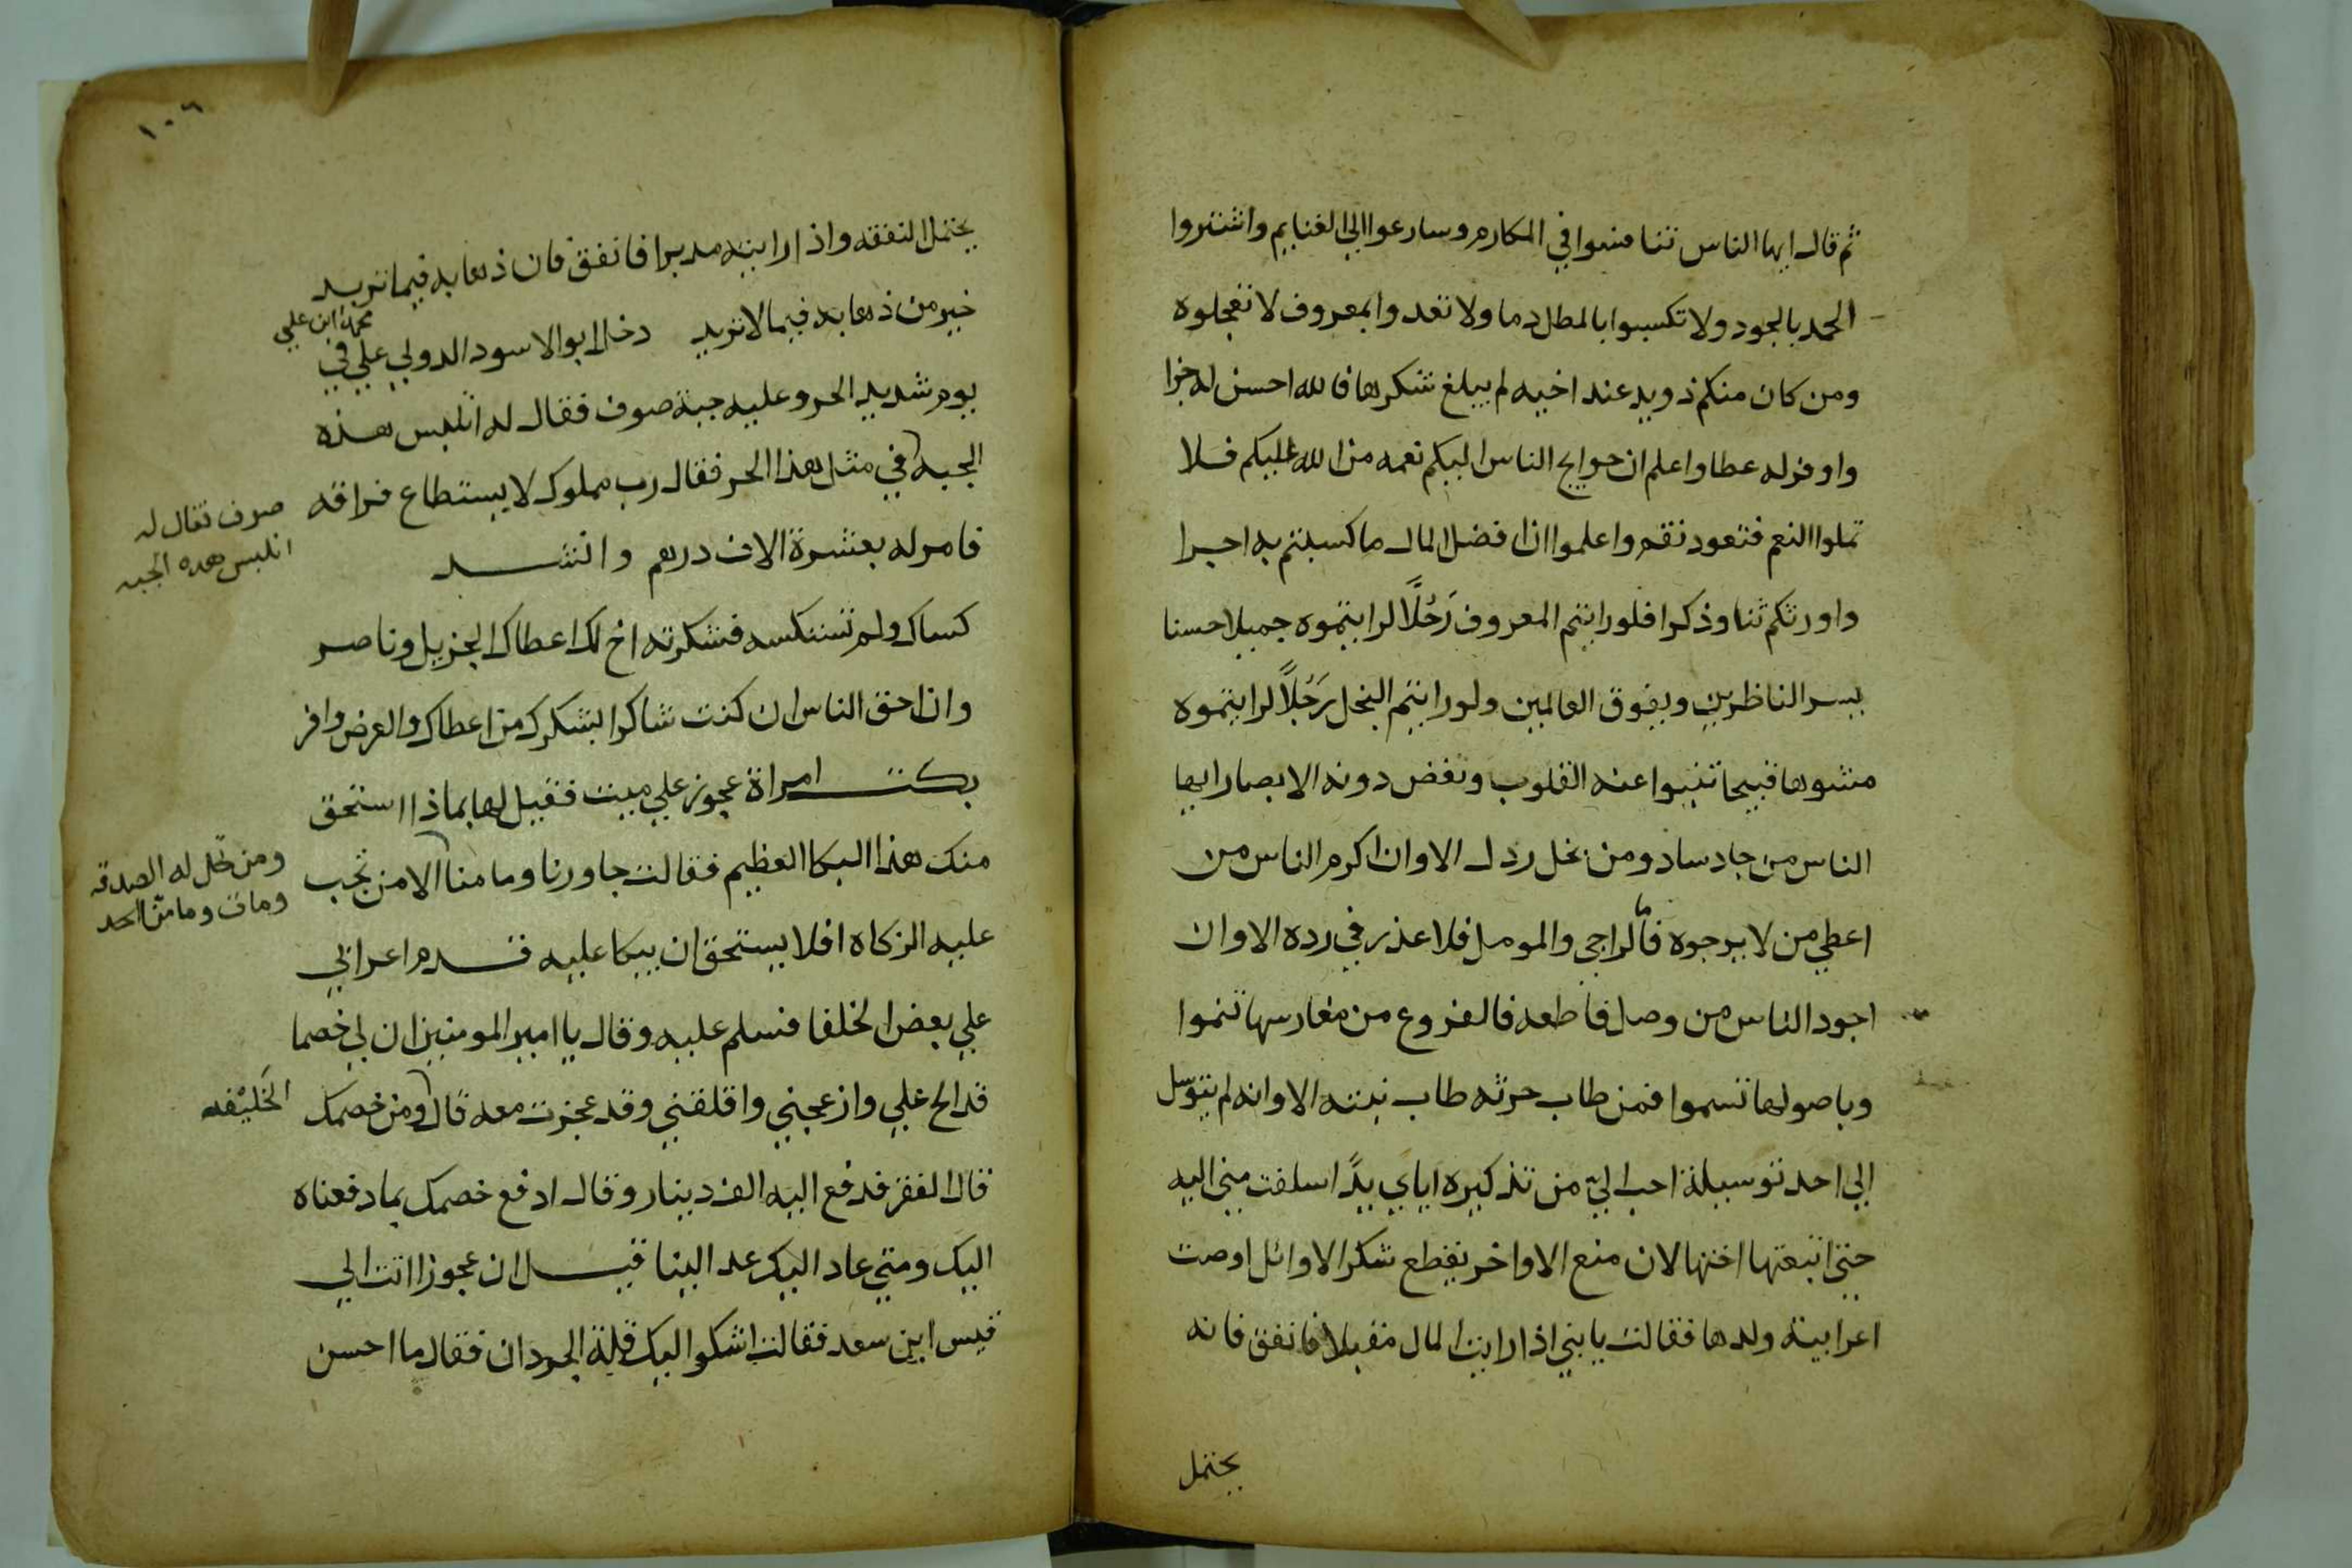 ثم قال ايها الناس تنافسوا في المكارم وسارعوا الي الغنايم واشتروا
الحمد بالجود ولا تكسبوا بالمطل دما ولا تعدوا بمعروف لا تعجلوه
ومن كان منكم ذويد عند اخيه لم يبلغ شكرها فالله احسن له جزا
واوفر له عطا واعلم ان حوايج الناس اليكم نعمه من الله عليكم فلا
تملوا النعم فتعود نقم واعلموا ان افضل المال ما كسبتم به اجرا
واورثكم ثنا وذكرا فلو رايتم المعروف رَجُلًا لرايتموه جميلا حسنا
يسر الناظرين ويفوق العالمين ولو رايتم البخل رَجُلًا لرايتموه
مشوها قبيحا تنبوا عنه القلوب وتغض دونه الابصار ايها
الناس من جاد ساد ومن بخل ردل الا وان اكرم الناس من
اعطي من لا يرجوه فاما الراجي والمومل فلا عذر في رده الا وان
اجود الناس من وصل قاطعه فالفروع من مغارسها تنموا
وباصولها تسموا فمن طاب حرثه طاب نبته الا وانه لم يتوسّل
الي احد توسيلة احب اليّ من تذكيره اياي يدًا اسلفت مني اليه
حتي اتبعتها اختها لان منع الاواخر يقطع شكر الاوائل اوصت
اعرابية ولدها فقالت يا بني اذا رايت المال مقبلا فانفق فانه
يحتمل
١٠٦
يحتمل النفقه واذا رايته مدبرا فانفق فان ذهابه فيما تريد
خير من ذهابه فيما لا تريد دخل ابو الاسود الدولي علي في
محمد ابن علي
يوم شديد الحر وعليه جبة صوف فقال له اتلبس هذه
الجبه في مثل هذا الحر فقال رب مملوك لا يستطاع فراقه
صوف فقال له
اتلبس هده الجبه
فامر له بعشرة الاف درهم وانشد
كساك ولم تستكسه فشكرته اخ لك اعطاك الجزيل وناصر
وان احق الناس ان كنت شاكرا بشكرك من اعطاك والعرض وافر
بكت امراة عجوز علي ميت فقيل لها بماذا استحق
منك هذا البكا العظيم فقالت جاورنا وما منا الا من تجب
ومن تحل له الصدقه
ومات وما منا احد
عليه الزكاه افلا يستحق ان يبكا عليه قدم اعرابي
علي بعض الخلفا فسلم عليه وقال يا امير المومنين ان لي خصما
قد الح علي وازعجني واقلقني وقد عجزت معه قال ومن خصمك
الخَليْفه
قال الفقر فدفع اليه الف دينار وقال ادفع خصمك بما دفعناه
اليك ومتي عاد اليك عد الينا قيل ان عجوزا اتت الي
قيس ابن سعد فقالت اشكوا اليك قلة الجردان فقال ما احسن